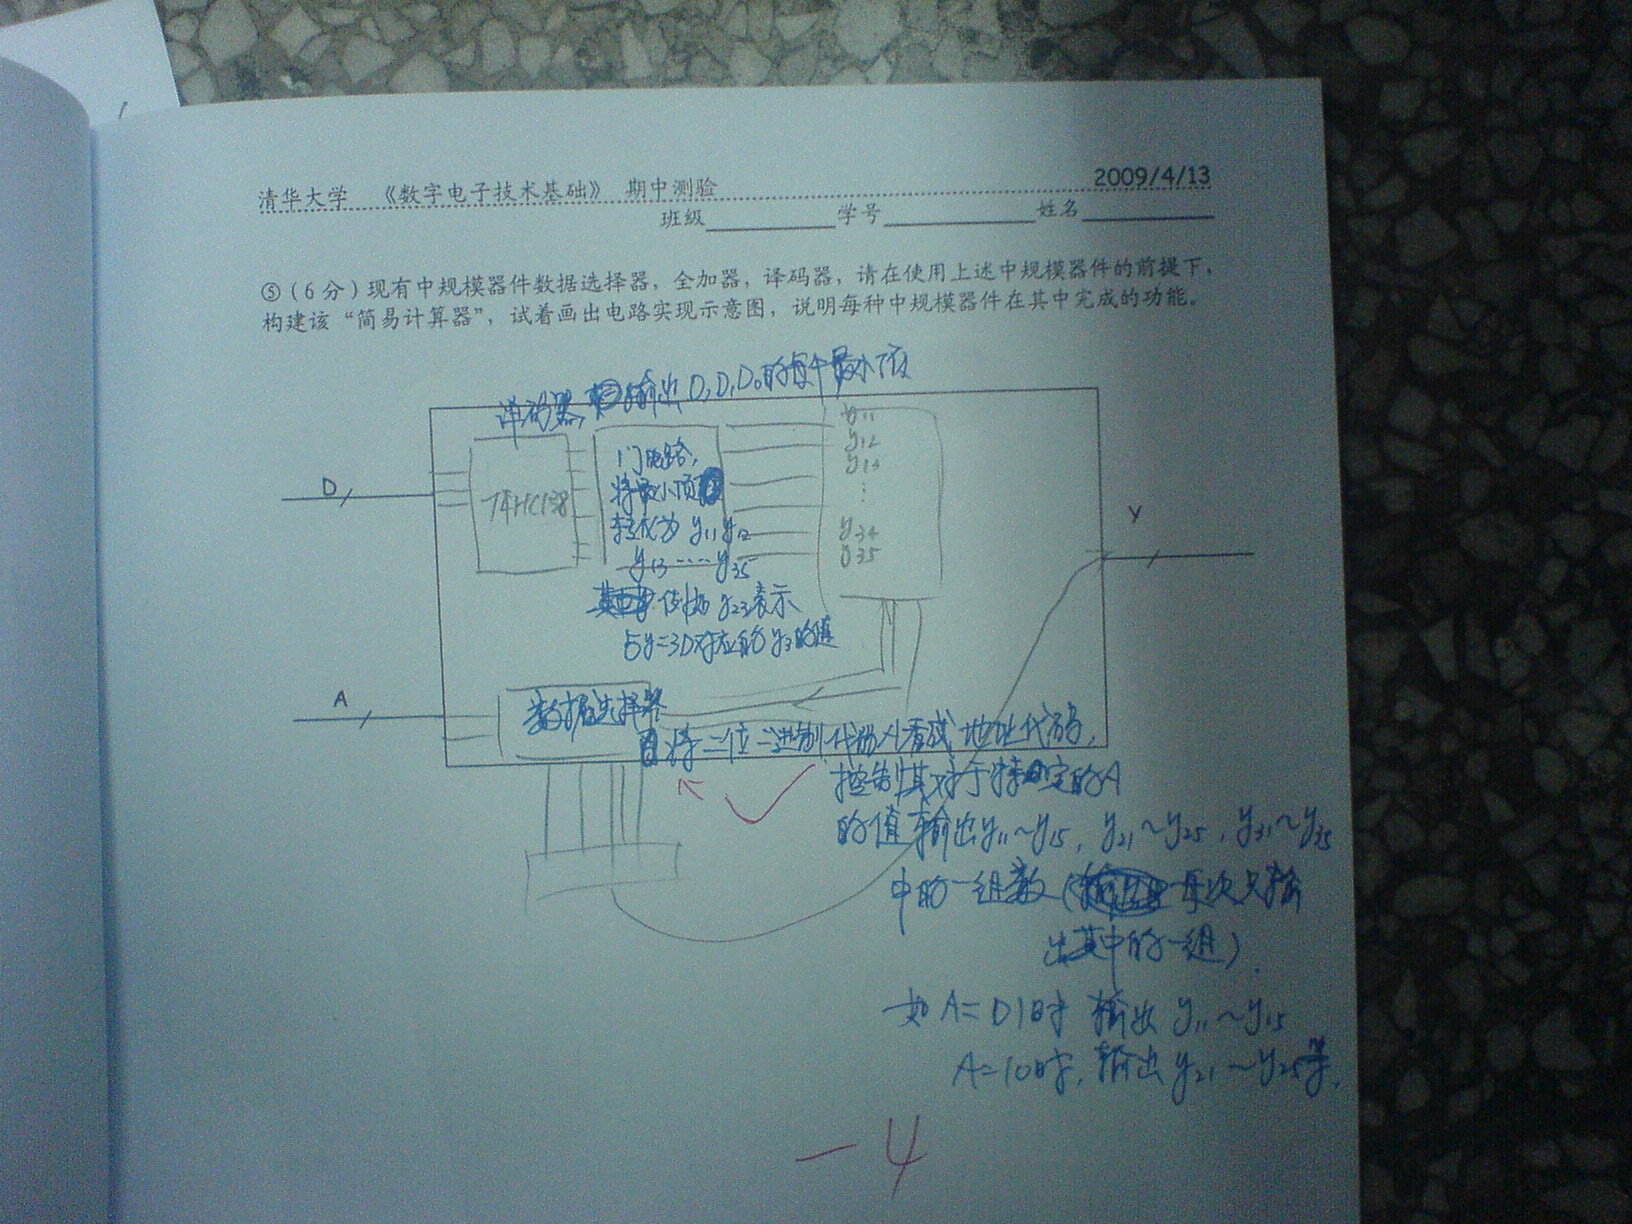 清华大学 《数字电子技术基础》 期中测验 2009/4/13
班级 学号 姓名
⑤(6分)现有中规模器件数据选择器,全加器,译码器,请在使用上述中规模器件的前提下,
构建该“简易计算器”,试着画出电路实现示意图,说明每种中规模器件在其中完成的功能。
译码器,输出D₂D₁D₀的每个最小项
D
74HC138
门电路,
将最小项
转化为 y₁₁ y₁₂
y₁₃ ···· y₃₅
例如 y₂₃表示
与y=3D对应的y₃的值
y₁₁
y₁₂
y₁₃
⋮
y₃₄
y₃₅
Y
A
数据选择器
将二位二进制代码A看成地址代码,
控制其对于特定的A
的值输出y₁₁~y₁₅, y₂₁~y₂₅, y₃₁~y₃₅
中的一组数(每次只输
出其中的一组).
如 A=01时 输出 y₁₁~y₁₅
A=10时, 输出 y₂₁~y₂₅等.
-4